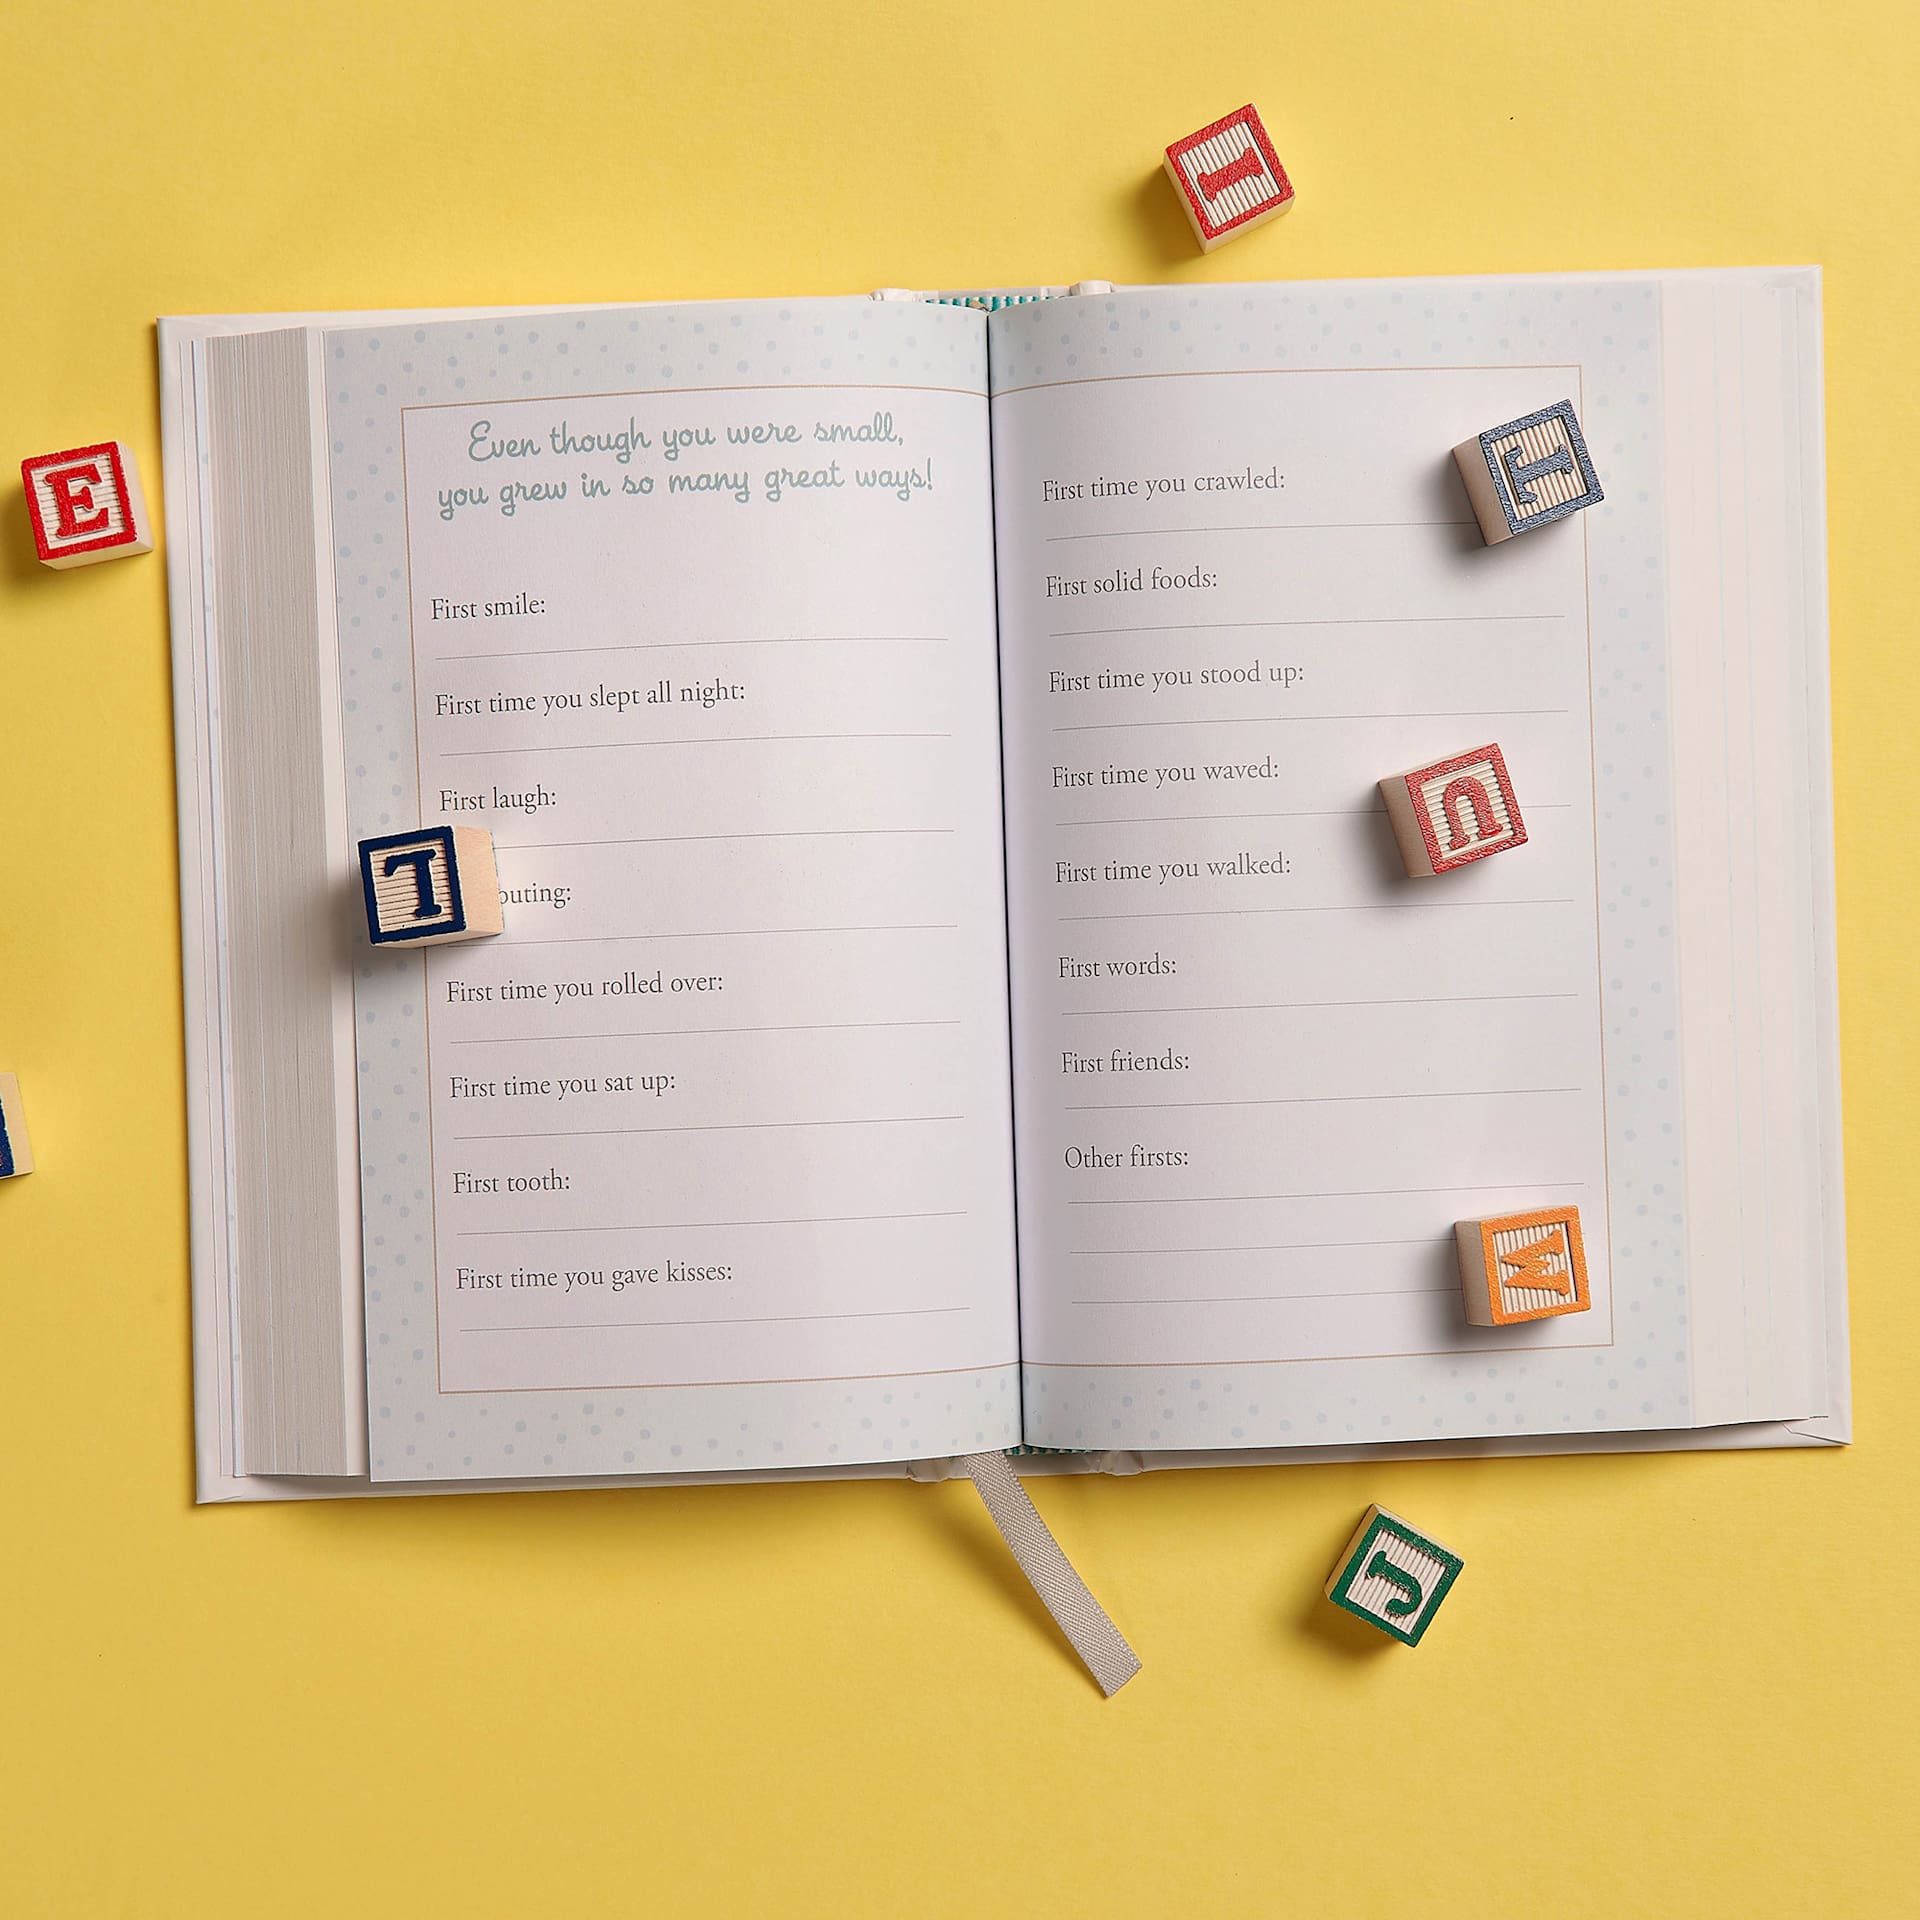 I
E
Even though you were small,
you grew in so many great ways!
First smile:
First time you slept all night:
First laugh:
L
outing:
First time you rolled over:
First time you sat up:
First tooth:
First time you gave kisses:
First time you crawled:
T
First solid foods:
First time you stood up:
First time you waved:
U
First time you walked:
First words:
First friends:
Other firsts:
M
J